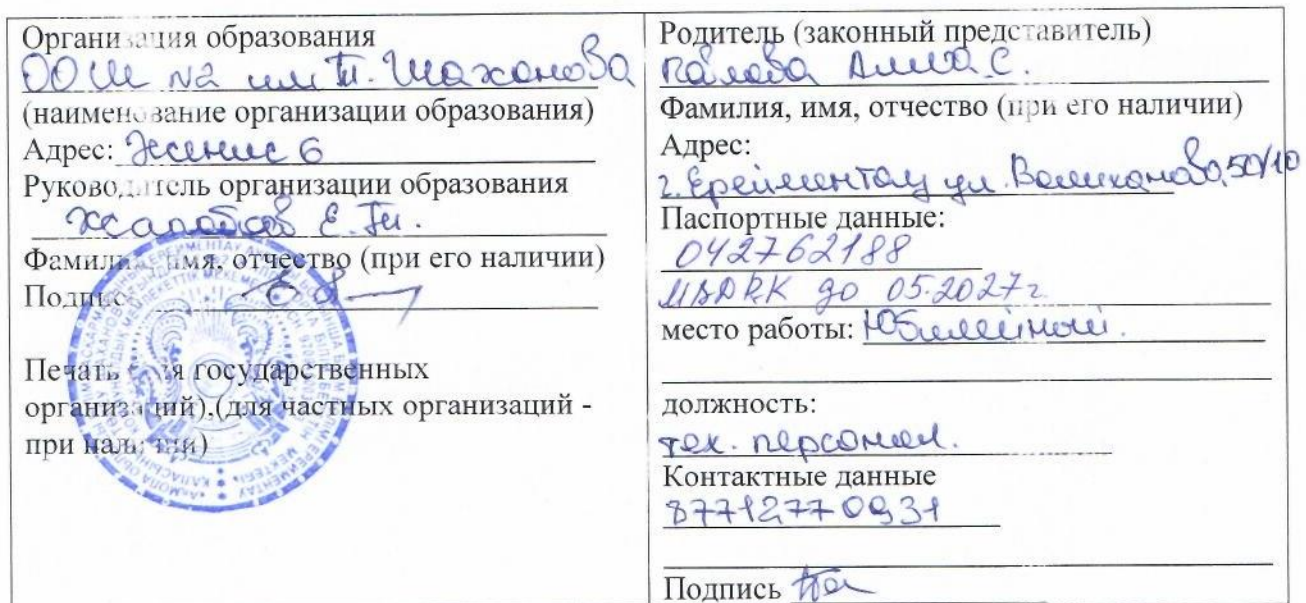 Организация образования
ООШ №2 им Т. Шаханова
(наименование организации образования)
Адрес: Женис 6
Руководитель организации образования
Е.
Фамилия, имя, отчество (при его наличии)
Подпись
Печать (для государственных
организаций),(для частных организаций -
при наличии)
Родитель (законный представитель)
С.
Фамилия, имя, отчество (при его наличии)
Адрес:
г. Ерейментау ул. Валиханова 50/10
Паспортные данные:
042762188
до 05.2027г
место работы: Юбилейный.
должность:
тех. персонал.
Контактные данные
87712770931
Подпись